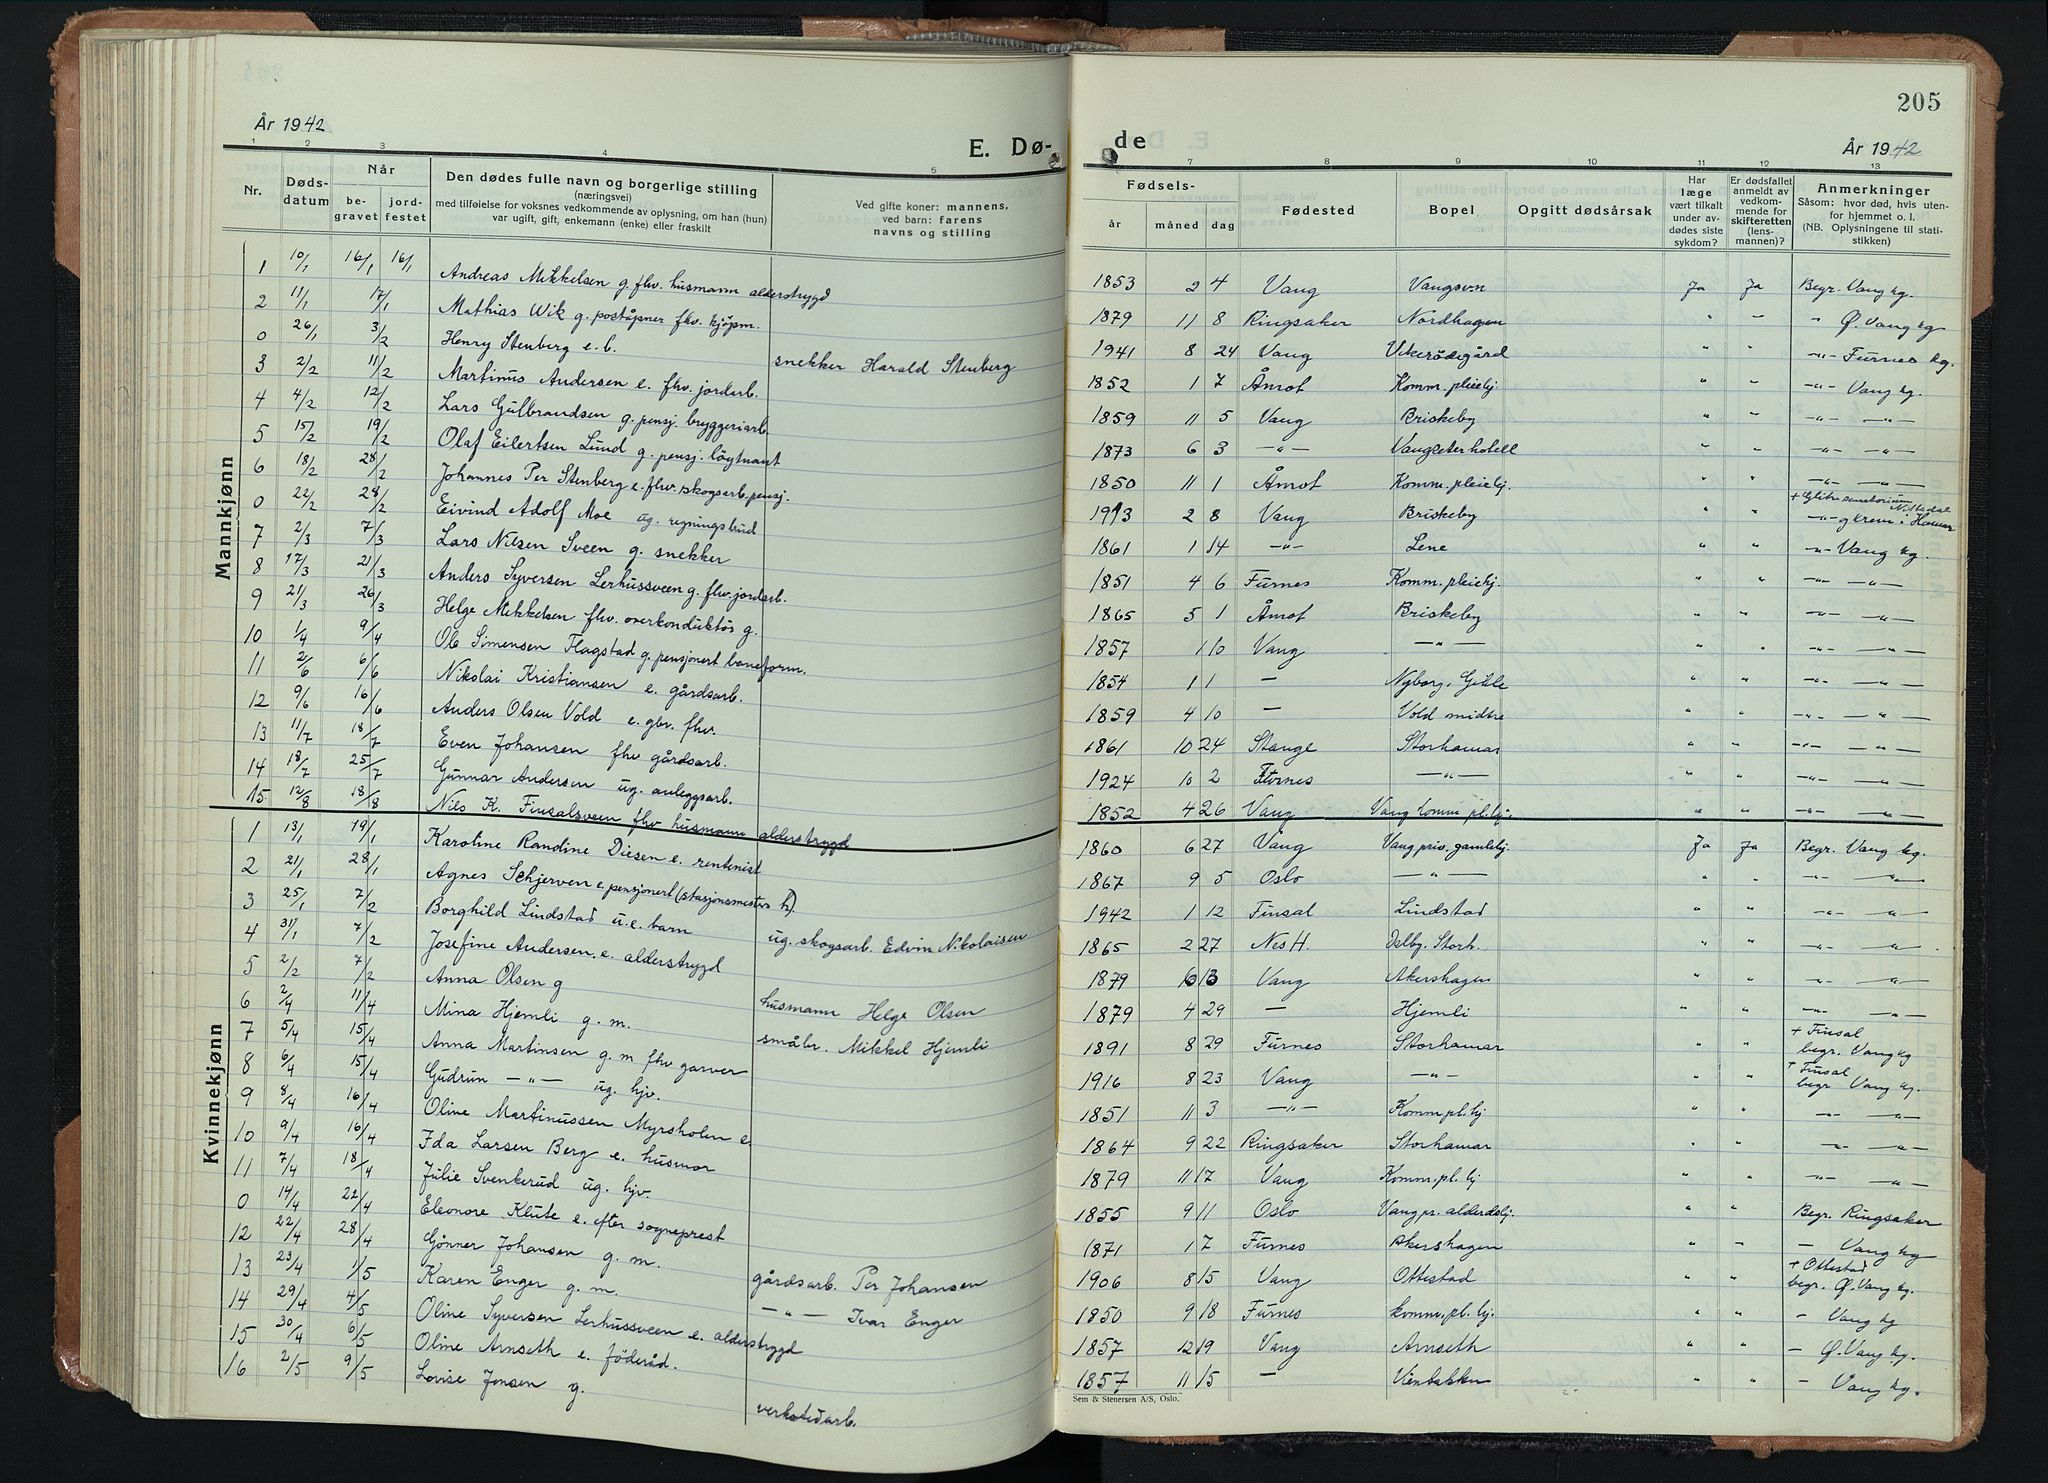 205
År 1942
E. Dø-
de
År 1942
1 2 3 4 5 7 8 9 10 11 12 13
Nr. Døds-datum Når be-gravet jord-festet Den dødes fulle navn og borgerlige stilling (næringsvei) med tilføielse for voksnes vedkommende av oplysning, om han (hun) var ugift, gift, enkemann (enke) eller fraskilt Ved gifte koner: mannens, ved barn: farens navns og stilling Fødsels- år måned dag Fødested Bopel Opgitt dødsårsak Har læge vært tilkalt under av-dødes siste sykdom? Er dødsfallet anmeldt av vedkom-mende for skifteretten (lens-mannen)? Anmerkninger Såsom: hvor død, hvis uten-for hjemmet o. l. (NB. Oplysningene til stati-stikken)
Mannkjønn
1 10/1 16/1 16/1 Andreas Mikkelsen g. fhv. husmann alderstrygd 1853 2 4 Vang Vangsvn Ja Ja Begr. Vang kg.
2 11/1 17/1 Mathias Wik g. poståpner fhv. kjøpm. 1879 11 8 Ringsaker Nordhagen " " " Ø. Vang kg
0 26/1 3/2 Henry Stenberg e.b. snekker Harald Stenberg 1941 8 24 Vang Vikerødegård " " -"- Furnes kg.
3 2/2 11/2 Martinus Andersen e. fhv. jordarb. 1852 1 7 Åmot Komm. pleiehj. " " -"- Vang kg.
4 4/2 12/2 Lars Gulbrandsen g. pensj. bryggeriarb. 1859 11 5 Vang Briskeby " " -"- -"-
5 15/2 19/2 Olaf Eilertsen Lund g. pensj. løytnant 1873 6 3 -"- Vangseterhotell " " -"- -"-
6 18/2 28/2 Johannes Per Stenberg e. fhv. skogsarb. pensj. 1850 11 1 Åmot Komm. pleiehj. " " -"- -"-
0 22/2 28/2 Eivind Adolf Moe ug. regningsbud 1913 2 8 Vang Briskeby " " + Glitre sanatorium Nittedal -"- krem i Hamar
7 2/3 7/3 Lars Nilsen Sveen g. snekker 1861 1 14 -"- Lene " " -"- Vang kg.
8 17/3 21/3 Anders Syversen Lerhussveen g. fhv. jordarb. 1851 4 6 Furnes Komm. pleiehj. " " -"- -"-
9 21/3 26/3 Helge Mikkelsen fhv. overkonduktør g. 1865 5 1 Åmot Briskeby " " -"- -"-
10 1/4 9/4 Ole Simensen Flagstad g. pensjonert baneform. 1857 1 10 Vang -"- " " -"- -"-
11 2/6 6/6 Nikolai Kristiansen e. gårdsarb. 1854 1 1 - Nyborg, Gikle " " -"- -"-
12 9/6 16/6 Anders Olsen Vold e. gbr. fhv. 1859 4 10 - Vold midtre " " -"- -"-
13 11/7 18/7 Even Johansen fhv gårdsarb. 1861 10 24 Stange Storhamar " " -"- -"-
14 18/7 25/7 Gunnar Andersen ug. anleggsarb. 1924 10 2 Furnes -"- " " -"- -"-
15 12/8 18/8 Nils K. Finsalsveen fhv husmann alderstrygd 1852 4 26 Vang Vang komm pl.hj. " " -"- -"-
Kvinnekjønn
1 13/1 19/1 Karoline Randine Diesen e. rentenist 1860 6 27 Vang Vang priv. gamlehj. Ja Ja Begr. Vang kg.
2 21/1 28/1 Agnes Schjerven e. pensjonert (stasjonsmesters h) 1867 9 5 Oslo -"- " " -"- -"-
3 25/1 7/2 Borghild Lindstad u.e. barn ug. skogsarb. Edvin Nikolaisen 1942 1 12 Finsal Lindstad " " -"- -"-
4 31/1 7/2 Josefine Andersen. e. alderstrygd 1865 2 27 Nes H. Dalby. Storh. " " -"- -"-
5 2/2 7/2 Anna Olsen g husmann Helge Olsen 1879 6 13 Vang Akershagen " " -"- -"-
6 2/4 11/4 Mina Hjemli g. m. småbr. Mikkel Hjemli 1879 4 29 - Hjemli " " -"- -"-
7 5/4 15/4 Anna Martinsen g. m fhv garver 1891 8 29 Furnes Storhamar " " + Finsal begr. Vang kg
8 6/4 15/4 Gudrun -"- ug. hjv. 1916 8 23 Vang -"- " " + Finsal begr Vang kg.
9 8/4 16/4 Oline Martinussen Myrsholen e 1851 11 3 -"- Komm.pl.hj " " -"- -"-
10 9/4 16/4 Ida Larsen Berg e. husmor 1864 9 22 Ringsaker Storhamar " " -"- -"-
11 7/4 18/4 Julie Svenkerud ug. hjv. 1879 11 17 Vang Komm.pl.hj " " -"- -"-
0 14/4 22/4 Eleonore Klute e. efter sogneprest 1855 9 11 Oslo Vang pr. alderdshj. " " Begr. Ringsaker
12 22/4 28/4 Gønner Johansen g. m. gårdsarb. Per Johansen 1871 1 7 Furnes Akershagen " " - Vang kg
13 23/4 1/5 Karen Enger g. m. -"- Ivar Enger 1906 8 15 Vang Ottestad " " + Ottestad begr. Ø. Vang kg.
14 29/4 4/5 Oline Syversen Lerhussveen e. alderstrygd 1850 9 18 Furnes komm.pl.hj. " " - Vang kg
15 30/4 6/5 Oline Arnseth e. föderåd. 1857 12 19 Vang Arnseth " " - Ø. Vang kg.
16 2/5 9/5 Lovise Jensen g. verkstedarb. 1857 11 15 - Vienbakken " " - Vang kg.
Sem & Stenersen A/S, Oslo.